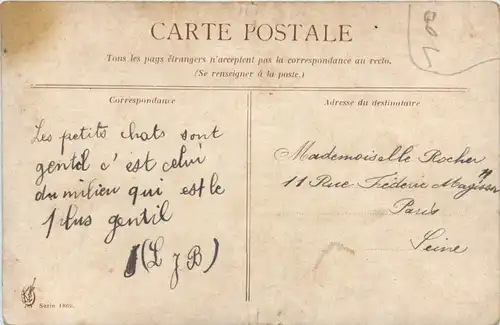 CARTE POSTALE
Tous les pays étrangers n'acceptent pas la correspondance au recto.
(Se renseigner à la poste.)
Correspondance
Adresse du destinataire
Les petits chats sont
gentil c'est celui
du milieu qui est le
plus gentil
(L J B)
Mademoiselle Rocher
11 Rue Féderic
Paris
Seine
Série 1802.